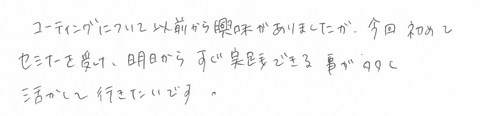 コーティングについて以前から興味がありましたが、今回初めて
セミナーを受け、明日からすぐ実践できる事が多く
活かして行きたいです。